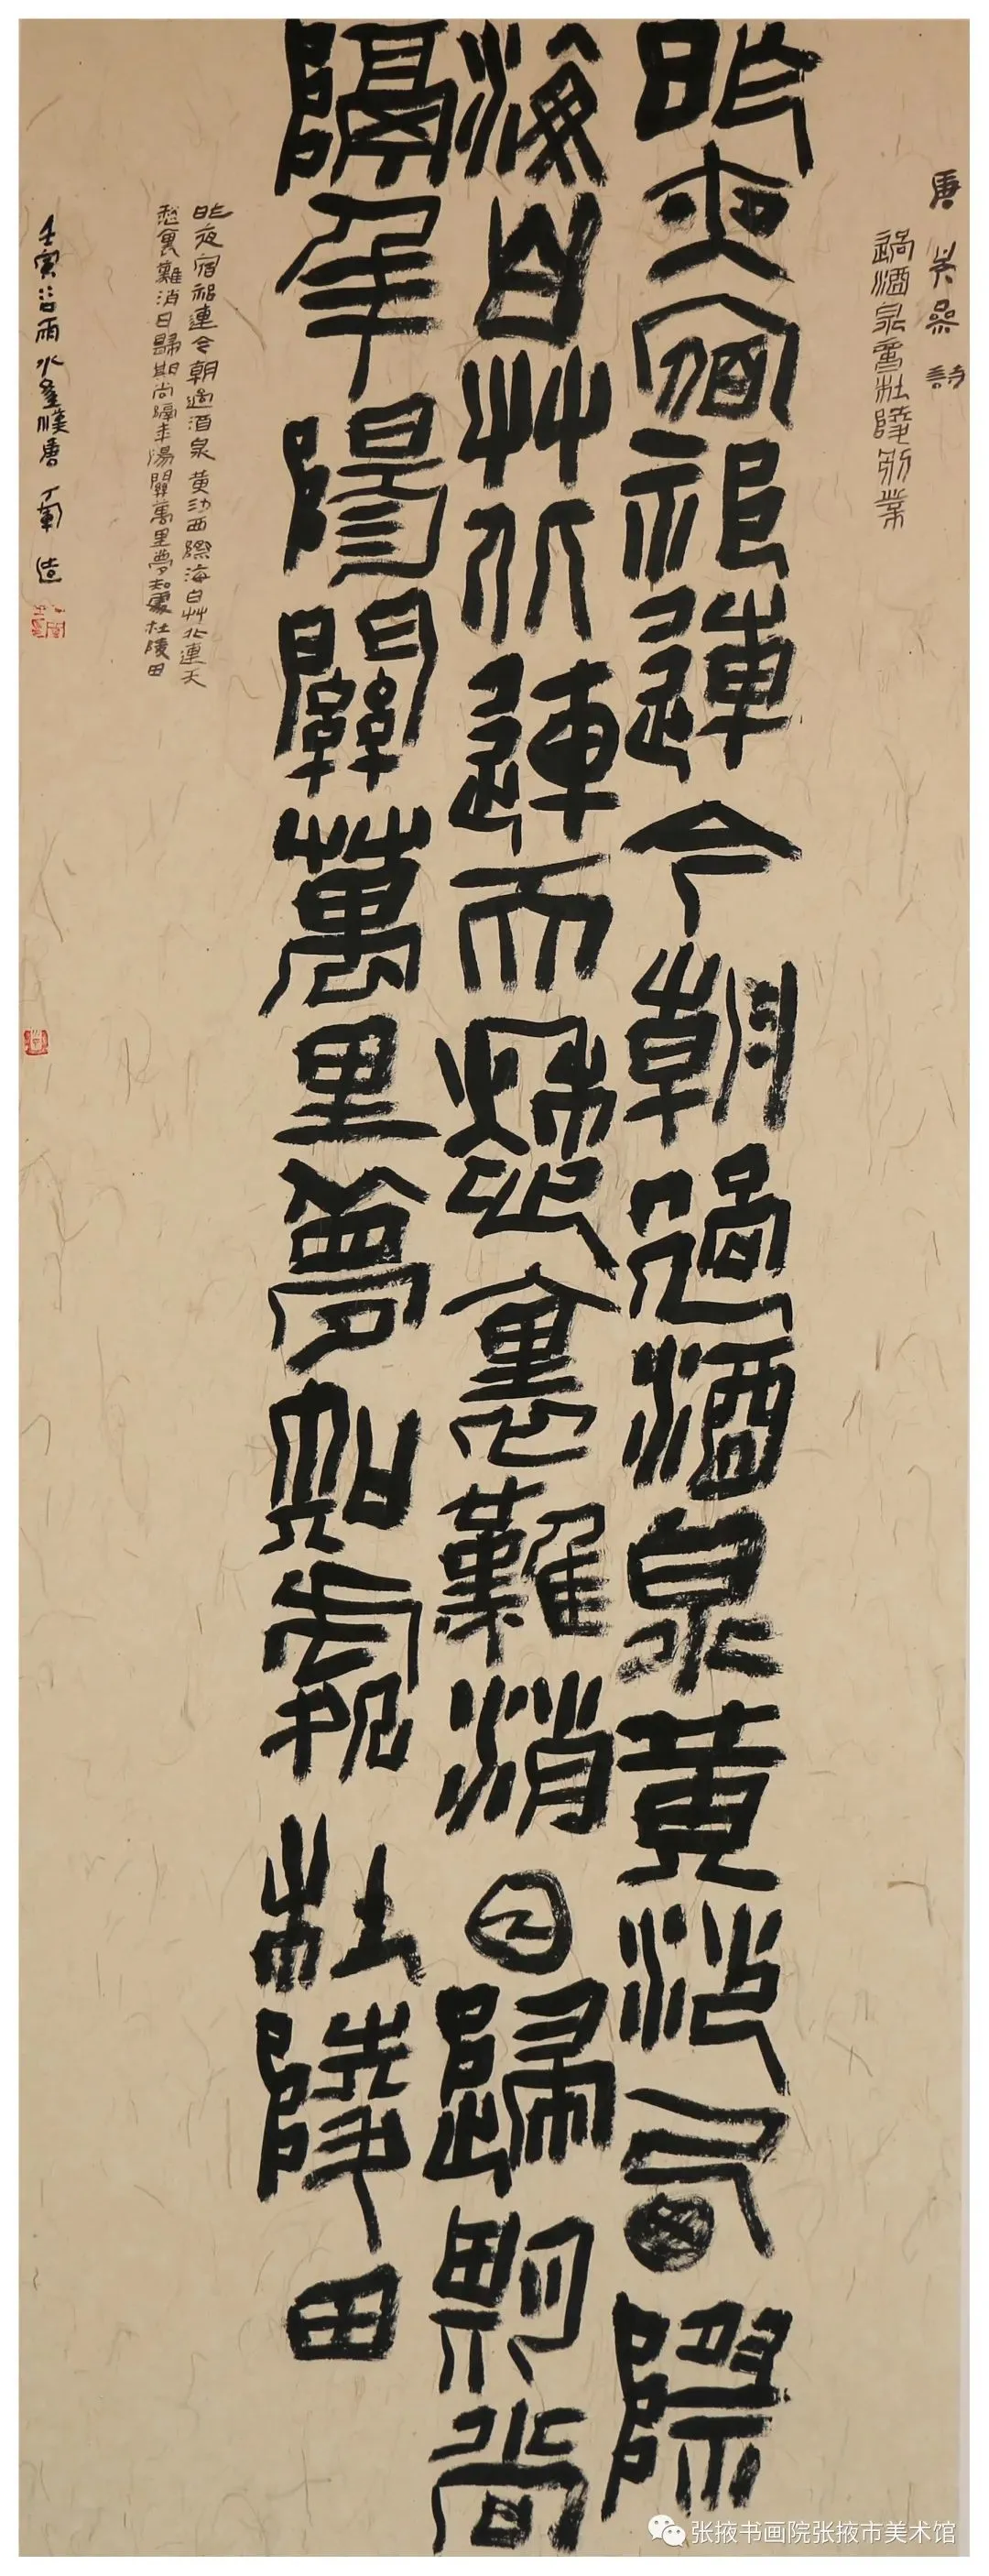 唐岑參詩
過酒泉憶杜陵別業
昨夜宿祁連今朝過酒泉黃沙西際
海白艸北連天愁裏難消日歸期尚
隔年陽關萬里夢知處杜陵田
昨夜宿祁連今朝過酒泉黃沙西際海白艸北連天
愁裏難消日歸期尚隔年陽關萬里夢知處杜陵田
壬寅谷雨水
张掖书画院张掖市美术馆